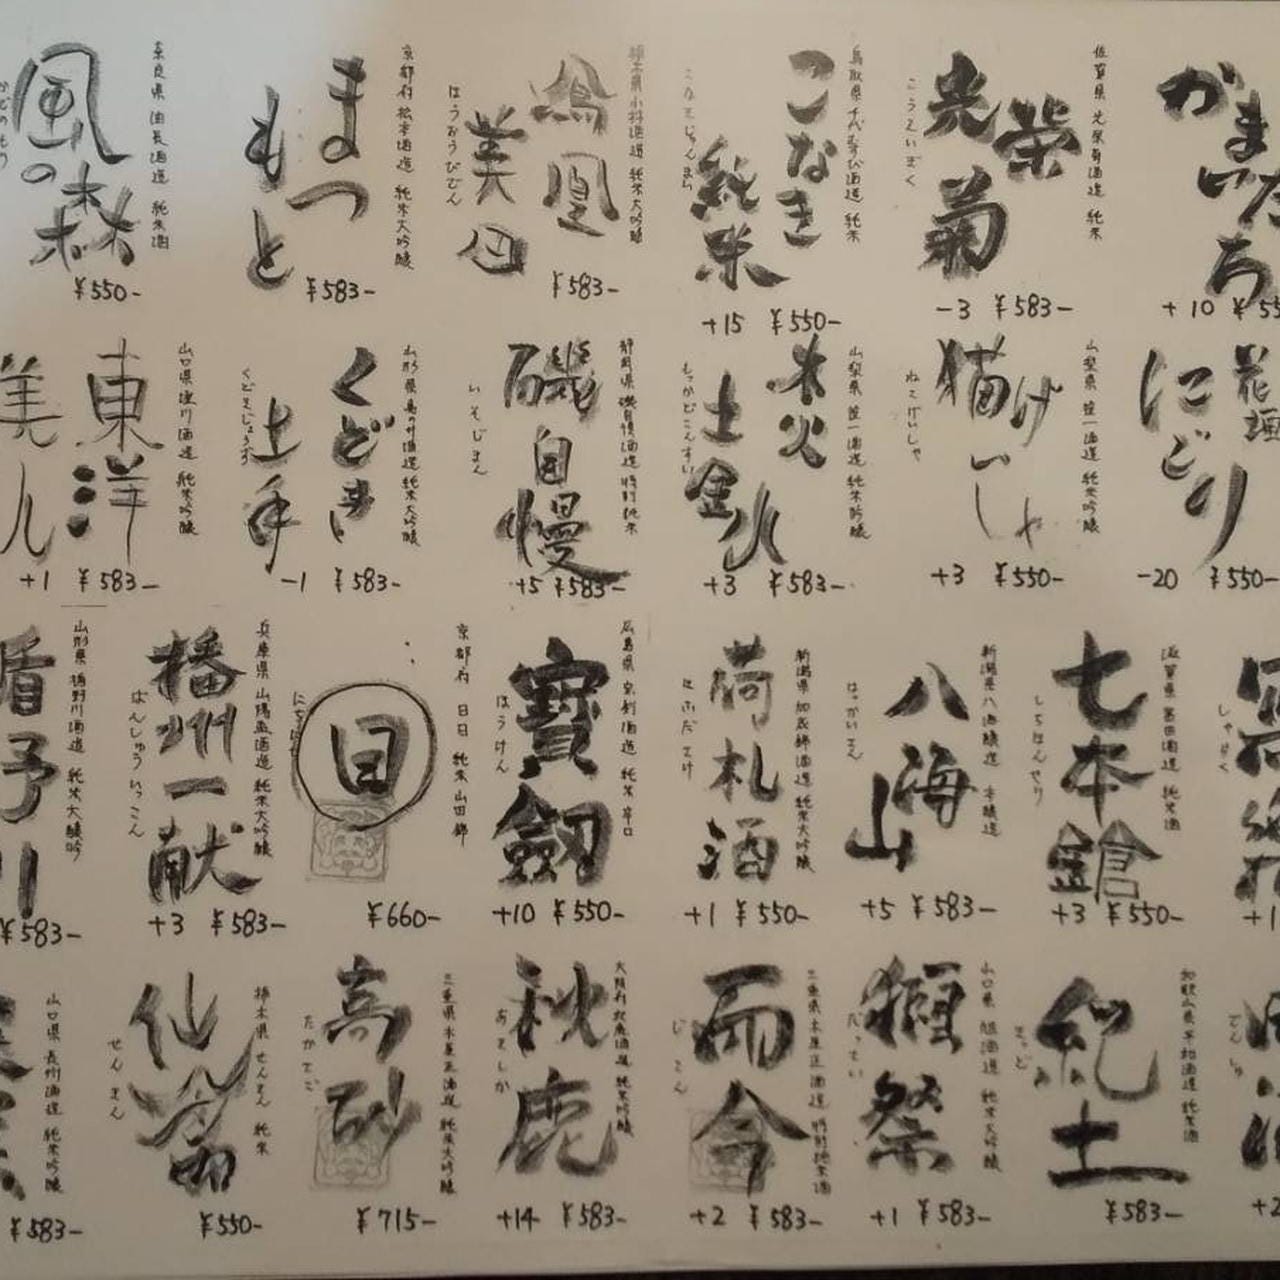 佐賀県 光栄菊酒造 純米
がまいたち
+10 ¥55
光栄菊
こうえいぎく
-3 ¥583-
鳥取県 千代むすび酒造 純米
こなき純米
こなきじゅんまい
+15 ¥550-
栃木県 小林酒造 純米大吟醸
鳳凰美田
ほうおうびでん
¥583-
京都府 松本酒造 純米大吟醸
まつもと
¥583-
奈良県 油長酒造 純米酒
風の森
かぜのもり
¥550-
花垣
にごり
-20 ¥550-
山梨県 笹一酒造 純米吟醸
猫げいしゃ
ねこげいしゃ
+3 ¥550-
山梨県 笹一酒造 純米吟醸
木火土金水
もっかどごんすい
+3 ¥583-
静岡県 磯自慢酒造 特別純米
磯自慢
いそじまん
+5 ¥583-
山形県 亀の井酒造 純米大吟醸
くどき上手
くどきじょうず
-1 ¥583-
山口県 澄川酒造 純米吟醸
東洋美人
+1 ¥583-
滋賀県 冨田酒造 純米酒
七本鎗
しちほんやり
+3 ¥550-
新潟県 八海醸造 本醸造
八海山
はっかいさん
+5 ¥583-
新潟県 加茂錦酒造 純米大吟醸
荷札酒
にふだざけ
+1 ¥550-
広島県 宝剣酒造 純米 辛口
寶劔
ほうけん
+10 ¥550-
京都府 日日 純米 山田錦
日
にちにち
¥660-
兵庫県 山陽盃酒造 純米大吟醸
播州一献
ばんしゅういっこん
+3 ¥583-
山形県 楯野川酒造 純米大醸吟
楯野川
¥583-
和歌山県 平和酒造 純米酒
紀土
きっど
¥583-
山口県 旭酒造 純米大吟醸
獺祭
だっさい
+1 ¥583-
三重県 木屋正酒造 特別純米酒
而今
じこん
+2 ¥583-
大阪府 秋鹿酒造 純米吟醸
秋鹿
あきしか
+14 ¥583-
三重県 木屋正酒造 純米大吟醸
高砂
たかさご
¥715-
栃木県 せんきん 純米
仙禽
せんきん
¥550-
山口県 長州酒造 純米吟醸
¥583-